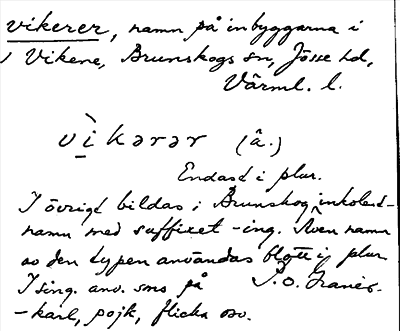 vikerer, namn på inbyggarna i
Vikene, Brunskogs sn, Jösse hd,
Värml. l.
vìkərər (â.)
Endast i plur.
I övrigt bildas i Brunskog inkolent-
namn med suffixet -ing. Även namn
av den typen användas blott i plur.
I sing. anv. sms på
-karl, pojk, flicka osv.